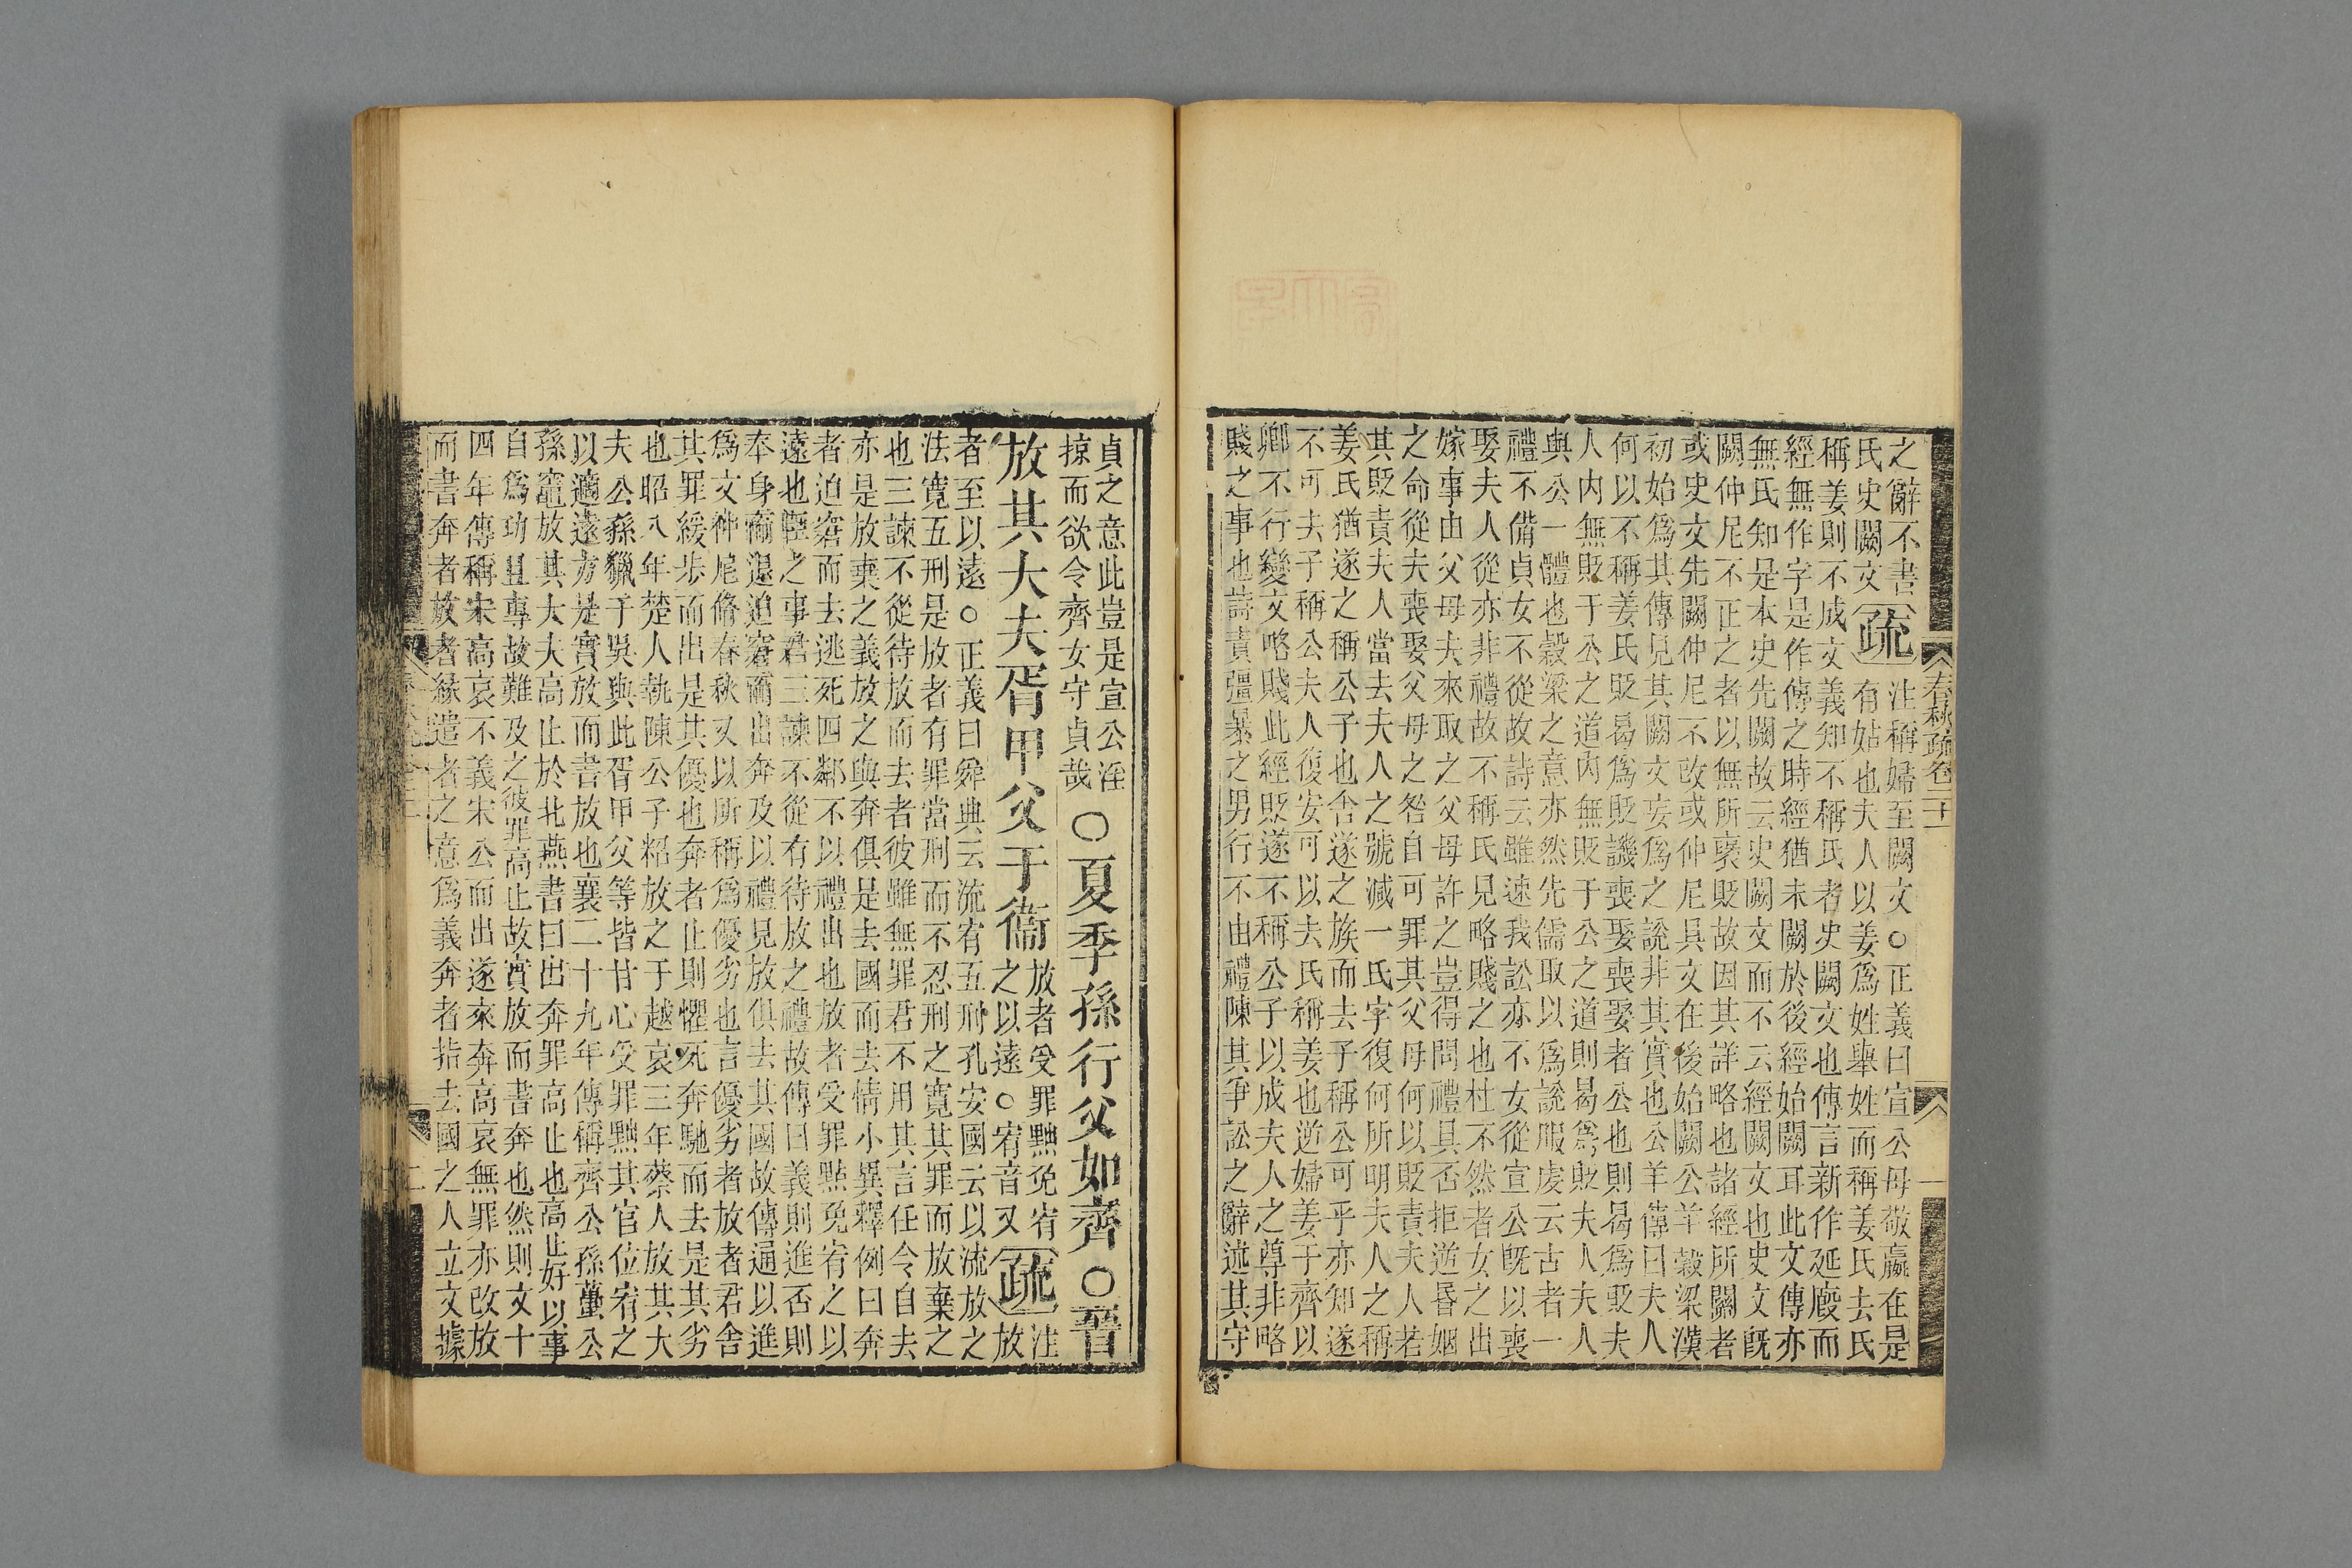 之辭不書
氏史闕文
疏
注稱婦至闕文○正義曰宣公母敬嬴在是
有姑也夫人以姜爲姓舉姓而稱姜氏去氏
稱姜則不成文義知不稱氏者史闕文也傳言新作延廄而
經無作字是作傳之時經猶未闕於後經始闕耳此文傳亦
無氏知是本史先闕故云史闕文而不云經闕文也史文旣
闕仲尼不正之者以無所襃貶故因其詳略也諸經所闕者
或史文先闕仲尼不改或仲尼具文在後始闕公羊穀梁漢
初始爲其傳見其闕文妄爲之說非其實也公羊傳曰夫人
何以不稱姜氏貶曷爲貶譏喪娶喪娶者公也則曷爲貶夫
人內無貶于公之道內無貶于公之道則曷爲貶夫人夫人
與公一體也穀梁之意亦然先儒取以爲說服虔云古者一
禮不備貞女不從故詩云雖速我訟亦不女從宣公旣以喪
娶夫人從亦非禮故不稱氏見略賤之也杜不然者女之出
嫁事由父母夫來取之父母許之豈得問禮具否拒逆昏姻
之命從夫喪娶父母之咎自可罪其父母何以貶責夫人若
其貶責夫人當去夫人之號減一氏字復何所明夫人之稱
姜氏猶遂之稱公子也舍遂之族而去子稱公可乎亦知遂
不可去子稱公夫人復安可以去氏稱姜也逆婦姜于齊以
卿不行變文略賤此經貶遂不稱公子以成夫人之尊非略
賤之事也詩責彊暴之男行不由禮陳其爭訟之辭述其守
春秋疏卷二十一
一
貞之意此豈是宣公淫
掠而欲令齊女守貞哉
○夏季孫行父如齊○晉
放其大夫胥甲父于衞
放者受罪黜免宥
之以遠○宥音又
疏
注放
者至以遠○正義曰舜典云流宥五刑孔安國云以流放之
法寬五刑是放者有罪當刑而不忍刑之寬其罪而放棄之
也三諫不從待放而去者彼雖無罪君不用其言任令自去
亦是放棄之義放之與奔俱是去國而去情小異釋例曰奔
者迫窘而去逃死四鄰不以禮出也放者受罪黜免宥之以
遠也臣之事君三諫不從有待放之禮故傳曰義則進否則
奉身而退迫窘而出奔及以禮見放俱去其國故傳通以進
爲文仲尼脩春秋又以所稱爲優劣也言優劣者放者君舍
其罪緩步而出是其優也奔者止則懼死奔馳而去是其劣
也昭八年楚人執陳公子招放之于越哀三年蔡人放其大
夫公孫獵于吳與此胥甲父等皆甘心受罪黜其官位宥之
以適遠方是實放而書放也襄二十九年傳稱齊公孫蠆公
孫竈放其大夫高止於北燕書曰出奔罪高止也高止好以事
自爲功且專故難及之彼罪高止故實放而書奔也然則文十
四年傳稱宋高哀不義宋公而出遂來奔高哀無罪亦改放
而書奔者放者緣遣者之意爲義奔者指去國之人立文據